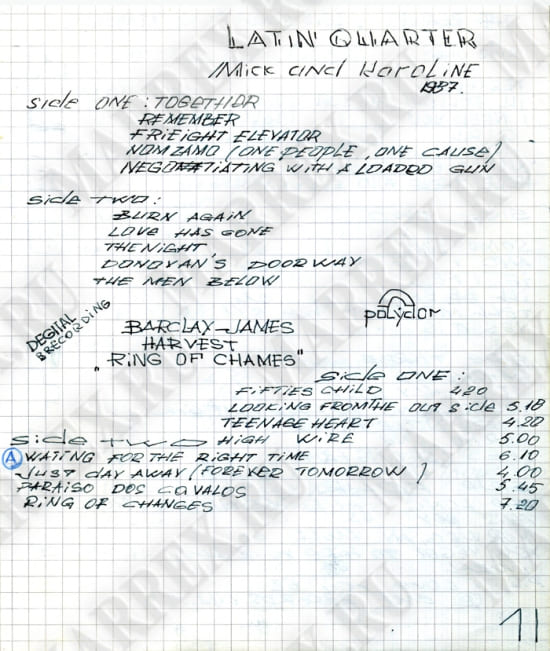 LATIN' QUARTER
MICK and KAROLINE
1987.
side ONE : TOGETHOR
REMEMBER
FRIEIGHT ELEVATOR
NOMZAMO (ONE PEOPLE, ONE CAUSE)
NEGOTIATING WITH A LOADED GUN
side TWO :
BURN AGAIN
LOVE HAS GONE
THE NIGHT
DONOVAN'S DOORWAY
THE MEN BELOW
DEGITAL
RECORDING
polydor
BARCLAY-JAMES
HARVEST
"RING OF CHAMES"
side ONE :
FIFTIES CHILD 4.20
LOOKING FROM THE OUT side 5.18
TEENAGE HEART 4.20
side TWO HIGH WIRE 5.00
A WATING FOR THE RIGHT TIME 6.10
JUST DAY AWAY (FOREVER TOMORROW) 4.00
PARAISO DOS CAVALOS 5.45
RING OF CHANGES 7.20
11
MARREX.RU